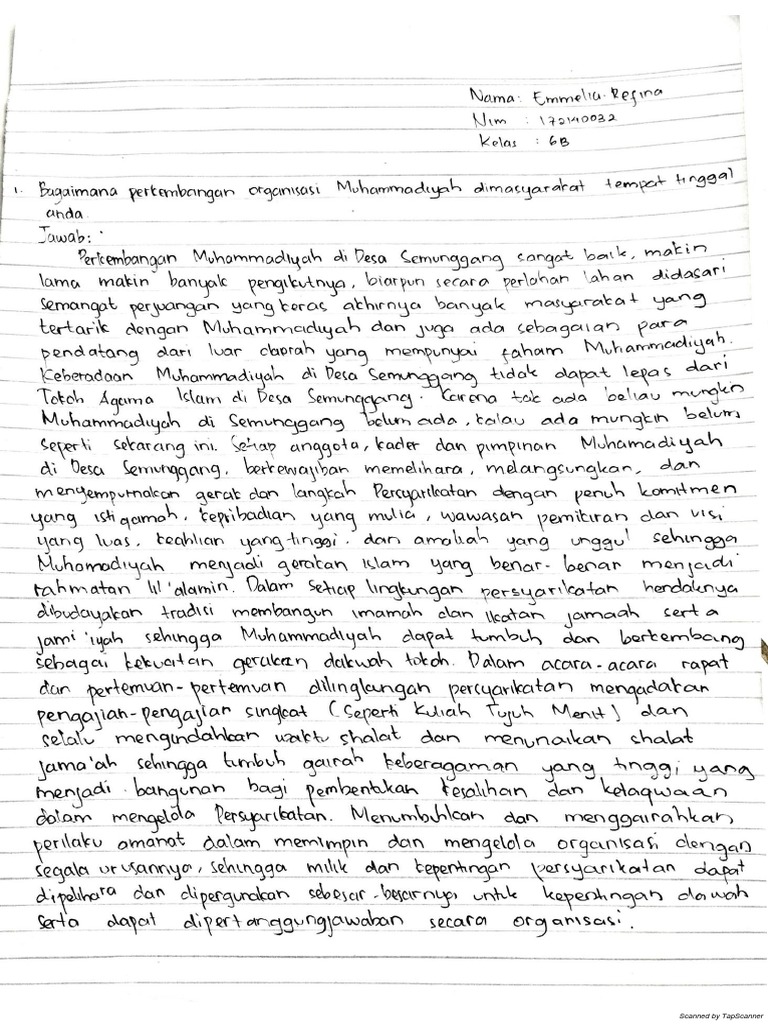 Nama: Emmelia Regina
Nim : 172140032
Kelas : 6B
1. Bagaimana perkembangan organisasi Muhammadiyah dimasyarakat tempat tinggal
anda.
Jawab:
Perkembangan Muhammadiyah di Desa Semunggang sangat baik, makin
lama makin banyak pengikutnya, biarpun secara perlahan lahan didasari
semangat perjuangan yang keras akhirnya banyak masyarakat yang
tertarik dengan Muhammadiyah dan juga ada sebagaian para
pendatang dari luar daerah yang mempunyai faham Muhammadiyah.
Keberadaan Muhammadiyah di Desa Semunggang tidak dapat lepas dari
Tokoh Agama Islam di Desa Semunggang. Karena tak ada beliau mungkin
Muhammadiyah di Semunggang belum ada, kalau ada mungkin belum
seperti sekarang ini. Setiap anggota, kader dan pimpinan Muhamadiyah
di Desa Semunggang, berkewajiban memelihara, melangsungkan, dan
menyempurnakan gerak dan langkah Persyarikatan dengan penuh komitmen
yang istiqamah, kepribadian yang mulia, wawasan pemikiran dan visi
yang luas, keahlian yang tinggi, dan amaliah yang unggul sehingga
Muhamadiyah menjadi gerakan Islam yang benar-benar menjadi
rahmatan lil'alamin. Dalam setiap lingkungan persyarikatan hendaknya
dibudayakan tradisi membangun imamah dan ikatan jamaah serta
jami'iyah sehingga Muhammadiyah dapat tumbuh dan berkembang
sebagai kekuatan gerakan dakwah tokoh. Dalam acara-acara rapat
dan pertemuan-pertemuan dilingkungan persyarikatan mengadakan
pengajian-pengajian singkat (Seperti Kuliah Tujuh Menit) dan
selalu mengindahkan waktu shalat dan menunaikan shalat
jama'ah sehingga tumbuh gairah keberagaman yang tinggi yang
menjadi bangunan bagi pembentukan kesalihan dan ketaqwaan
dalam mengelola Persyarikatan. Menumbuhkan dan menggairahkan
perilaku amanat dalam memimpin dan mengelola organisasi dengan
segala urusannya, sehingga milik dan kepentingan persyarikatan dapat
dipelihara dan dipergunakan sebesar-besarnya untuk kepentingan dawah
serta dapat dipertanggungjawaban secara organisasi.
Scanned by TapScanner